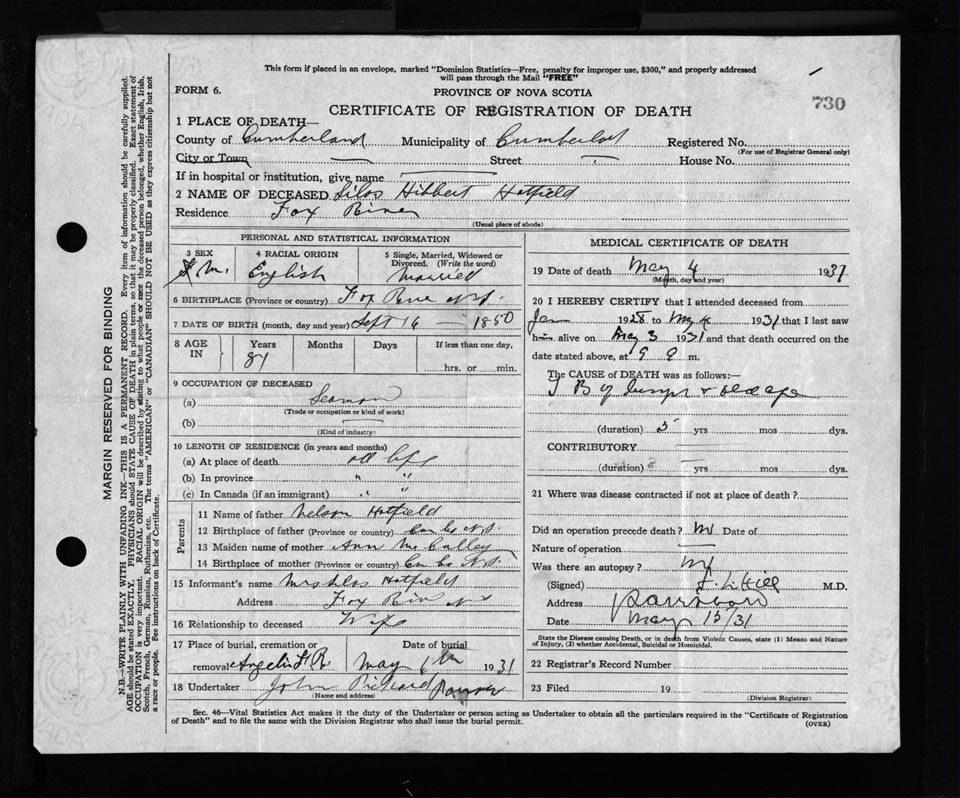 This form if placed in an envelope, marked "Dominion Statistics—Free, penalty for improper use, $300," and properly addressed
will pass through the Mail "FREE"
FORM 6.
PROVINCE OF NOVA SCOTIA
730
CERTIFICATE OF REGISTRATION OF DEATH
1 PLACE OF DEATH—
County of Cumberland Municipality of Cumberland Registered No.
(For use of Registrar General only)
City or Town — Street — House No.
If in hospital or institution, give name —
2 NAME OF DECEASED Silas Hibbert Hatfield
Residence Fox River
(Usual place of abode)
PERSONAL AND STATISTICAL INFORMATION
3 SEX 4 RACIAL ORIGIN 5 Single, Married, Widowed or
Divorced. (Write the word)
M. English Married
6 BIRTHPLACE (Province or country) Fox River N.S.
7 DATE OF BIRTH (month, day and year) Sept 16 — 1850
8 AGE IN Years Months Days If less than one day,
81 hrs. or min.
9 OCCUPATION OF DECEASED
(a) Seaman
(Trade or occupation or kind of work)
(b) —
(Kind of industry)
10 LENGTH OF RESIDENCE (in years and months)
(a) At place of death all life
(b) In province " "
(c) In Canada (if an immigrant) " "
Parents
11 Name of father Nelson Hatfield
12 Birthplace of father (Province or country) N.S.
13 Maiden name of mother Ann
14 Birthplace of mother (Province or country) N.S.
15 Informant's name Mrs Silas Hatfield
Address Fox River N S
16 Relationship to deceased Wife
17 Place of burial, cremation or Date of burial
removal May 6th 1931
18 Undertaker John Pickard
(Name and address)
MEDICAL CERTIFICATE OF DEATH
19 Date of death May 4 1931
(Month, day and year)
20 I HEREBY CERTIFY that I attended deceased from
Jan 1928 to May 4 1931 that I last saw
him alive on May 3 1931 and that death occurred on the
date stated above, at 9 m.
The CAUSE of DEATH was as follows:—
T B of lungs +
(duration) 5 yrs mos dys.
CONTRIBUTORY
(duration) — yrs mos dys.
21 Where was disease contracted if not at place of death?
Did an operation precede death? No Date of
Nature of operation —
Was there an autopsy? No
(Signed) Hill M.D.
Address Parrsboro
Date May 15/31
State the Disease causing Death, or in death from Violent Causes, state (1) Means and Nature
of Injury, (2) whether Accidental, Suicidal or Homicidal.
22 Registrar's Record Number
23 Filed 19
(Division Registrar)
Sec. 46—Vital Statistics Act makes it the duty of the Undertaker or person acting as Undertaker to obtain all the particulars required in the "Certificate of Registration
of Death" and to file the same with the Division Registrar who shall issue the burial permit.
(OVER)
MARGIN RESERVED FOR BINDING
N.B.—WRITE PLAINLY WITH UNFADING INK—THIS IS A PERMANENT RECORD. Every item of information should be carefully supplied.
AGE should be stated EXACTLY. PHYSICIANS should STATE CAUSE OF DEATH in plain terms, so that it may be properly classified. Exact statement of
OCCUPATION is very important. RACIAL ORIGIN will be described by stating to what people or race the deceased person belonged, whether English, Irish,
Scotch, French, German, Russian, Ruthenian, etc. The terms "AMERICAN" or "CANADIAN" SHOULD NOT BE USED as they express citizenship but not
a race or people. See instructions on back of Certificate.